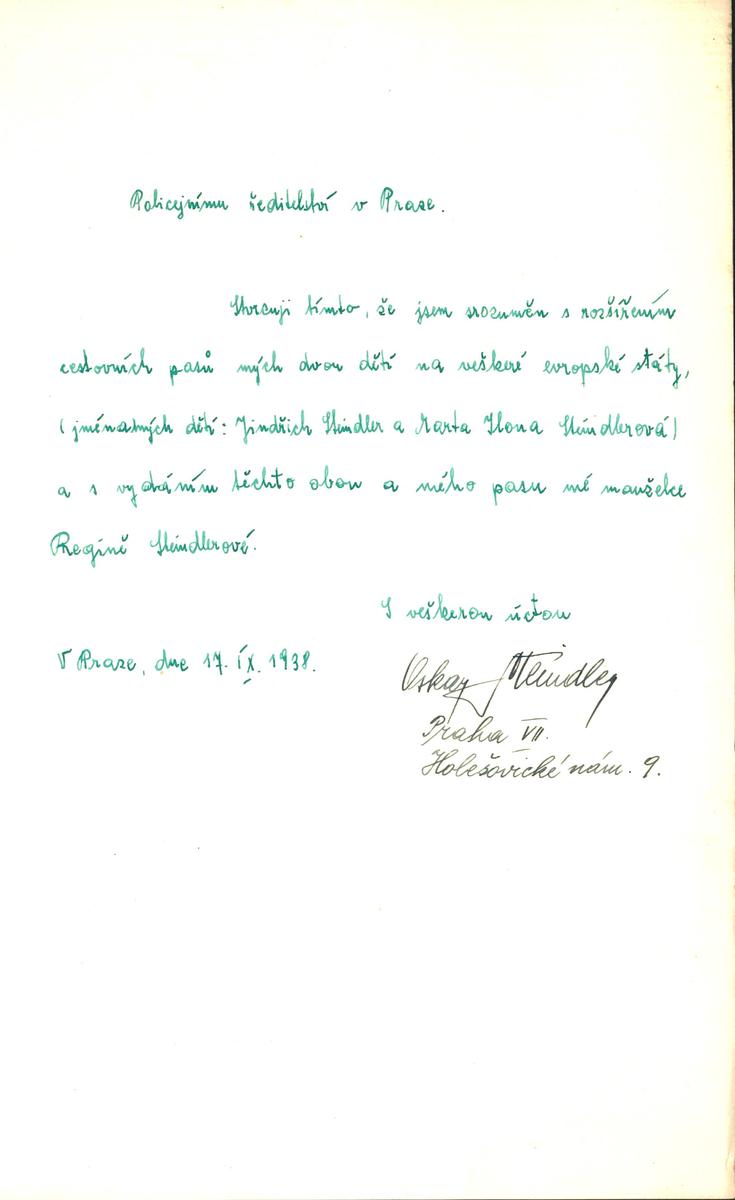 Policejnímu ředitelství v Praze.
Stvrzuji tímto, že jsem srozuměn s rozšířením
cestovních pasů mých dvou dětí na veškeré evropské státy,
(jménatných dětí: Jindřich Steindler a Marta Ilona Steindlerová)
a s vydáním těchto obou a mého pasu mé manželce
Regině Steindlerové.
S veškerou úctou
V Praze, dne 17. IX. 1938.
Oskar Steindler
Praha VII.
Holešovické nám. 9.